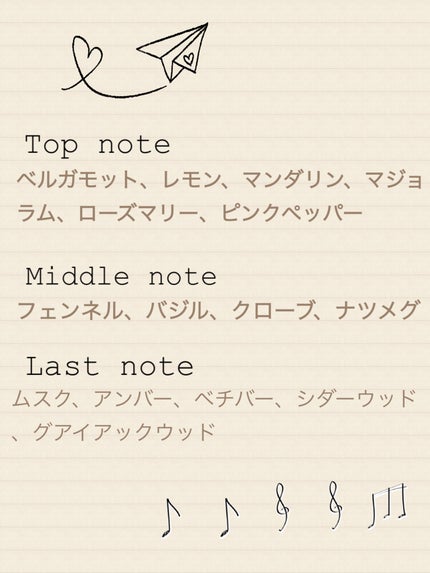 Top note
ベルガモット、レモン、マンダリン、マジョ
ラム、ローズマリー、ピンクペッパー
Middle note
フェンネル、バジル、クローブ、ナツメグ
Last note
ムスク、アンバー、ベチバー、シダーウッド
、グアイアックウッド